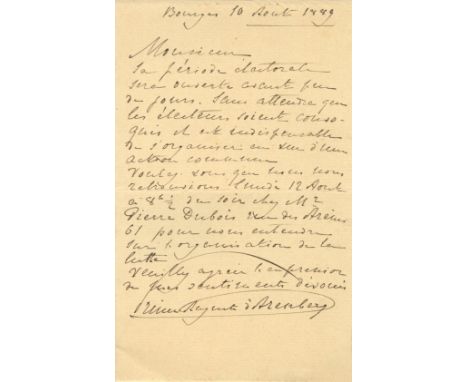 Bourges 10 Août 1889
Monsieur
La période électorale
sera ouverte avant peu
de jours. Sans attendre que
les électeurs soient convo-
qués il est indispensable
de s'organiser en vue d'une
action commune
Voulez vous que nous nous
retrouvions Lundi 12 Août
à 8h ½ du soir chez Mr
Pierre Dubois rue des Arènes
61 pour nous entendre
sur l'organisation de la
lutte
Veuillez agréer l'expression
de mes sentiments dévoués
Prince Auguste d'Arenberg